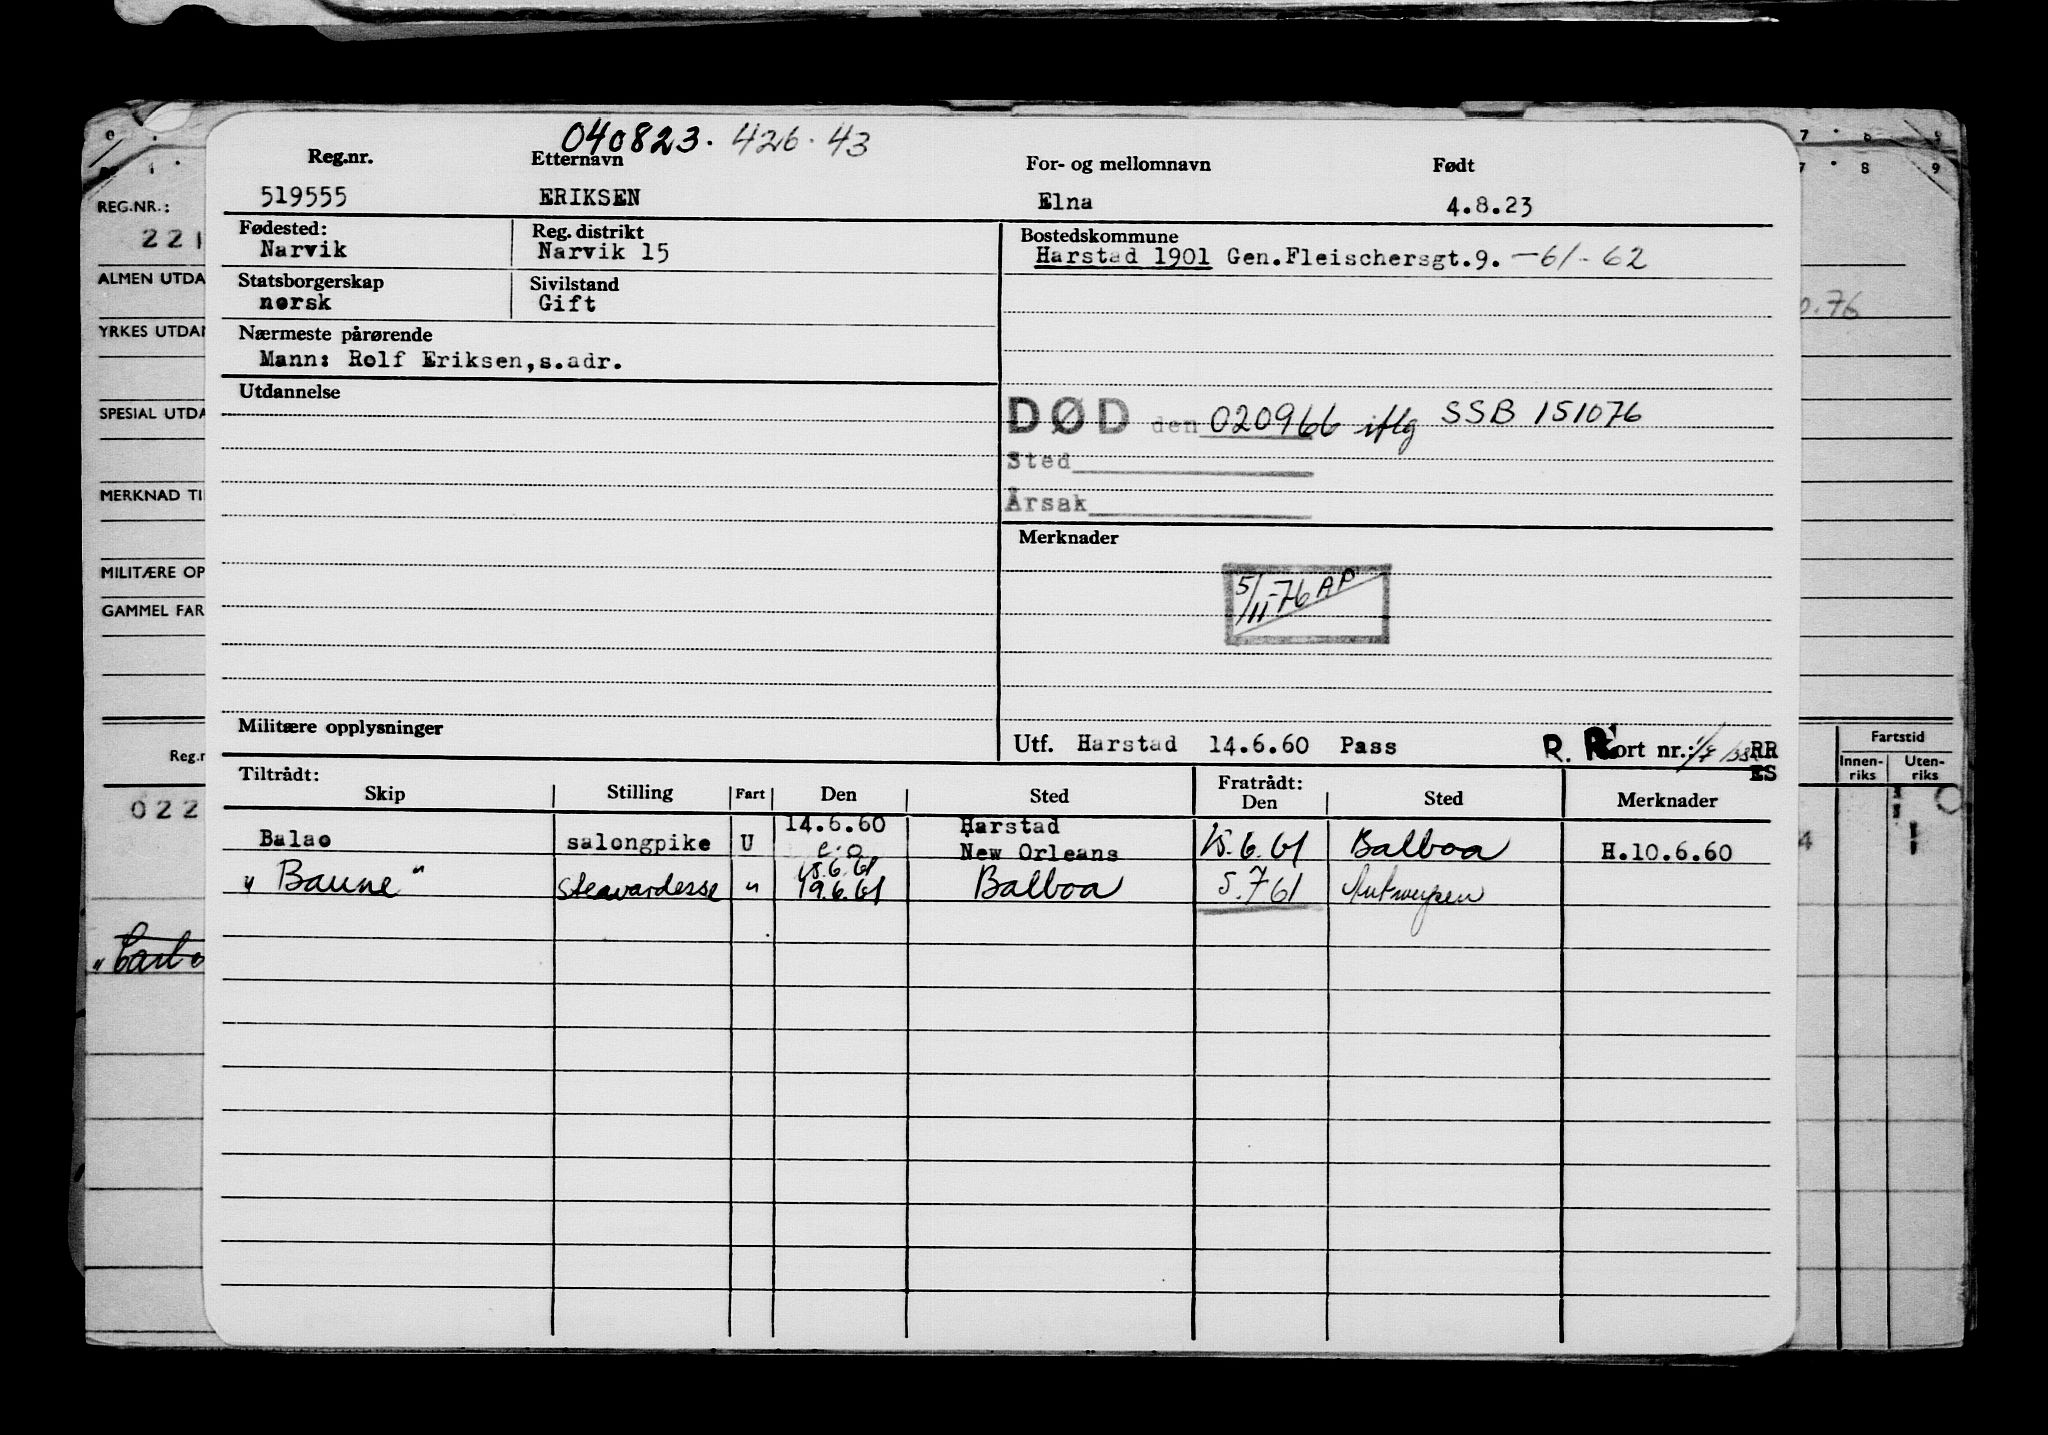 040823. 426.43
Reg.nr. Etternavn For- og mellomnavn Født
519555 ERIKSEN Elna 4.8.23
Fødested: Reg. distrikt Bostedskommune
Narvik Narvik 15 Harstad 1901 Gen.Fleischersgt.9. -61-62
Statsborgerskap Sivilstand
norsk Gift
Nærmeste pårørende
Mann: Rolf Eriksen,s.adr.
Utdannelse
DØD den 020966 iflg SSB 151076
Sted
Årsak
Merknader
5/11-76 AP
Militære opplysninger
Utf. Harstad 14.6.60 Pass R. R. Kort nr.: RR
ES
Tiltrådt: Fratrådt:
Skip Stilling Fart Den Sted Den Sted Merknader
14.6.60 Harstad
Balao salongpike U New Orleans 15.6.61 Balboa H.10.6.60
15.6.61
"Baune" Stewardesse " 19.6.61 Balboa 5.7.61 Antwerpen
REG.NR.:
221
ALMEN UTDA
YRKES UTDAN
SPESIAL UTDA
MERKNAD TI
MILITÆRE OP
GAMMEL FAR
Reg.n
022
7 8 9
7 8 9
0.76
Fartstid
Innen-riks Uten-riks
4